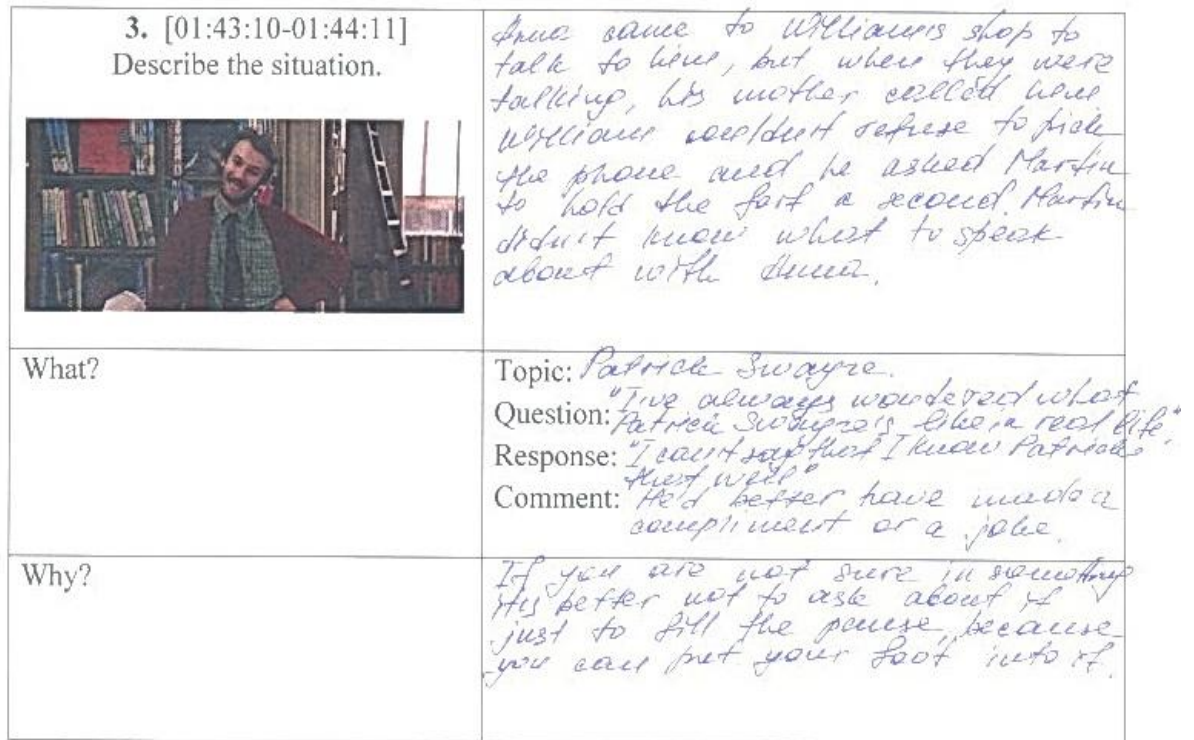 3. [01:43:10-01:44:11]
Describe the situation.
Anna came to William's shop to
talk to him, but when they were
talking, his mother called him
William couldn't refuse to pick
the phone and he asked Martin
to hold the fort a second. Martin
didn't know what to speak
about with Anna.
What?
Topic: Patrick Swayze.
Question: "I've always wondered what
Patrick Swayze's like in real life"
Response: "I can't say that I know Patrick
that well"
Comment: He'd better have made a
compliment or a joke.
Why?
If you are not sure in something
it's better not to ask about it
just to fill the pause, because
you can put your foot into it.